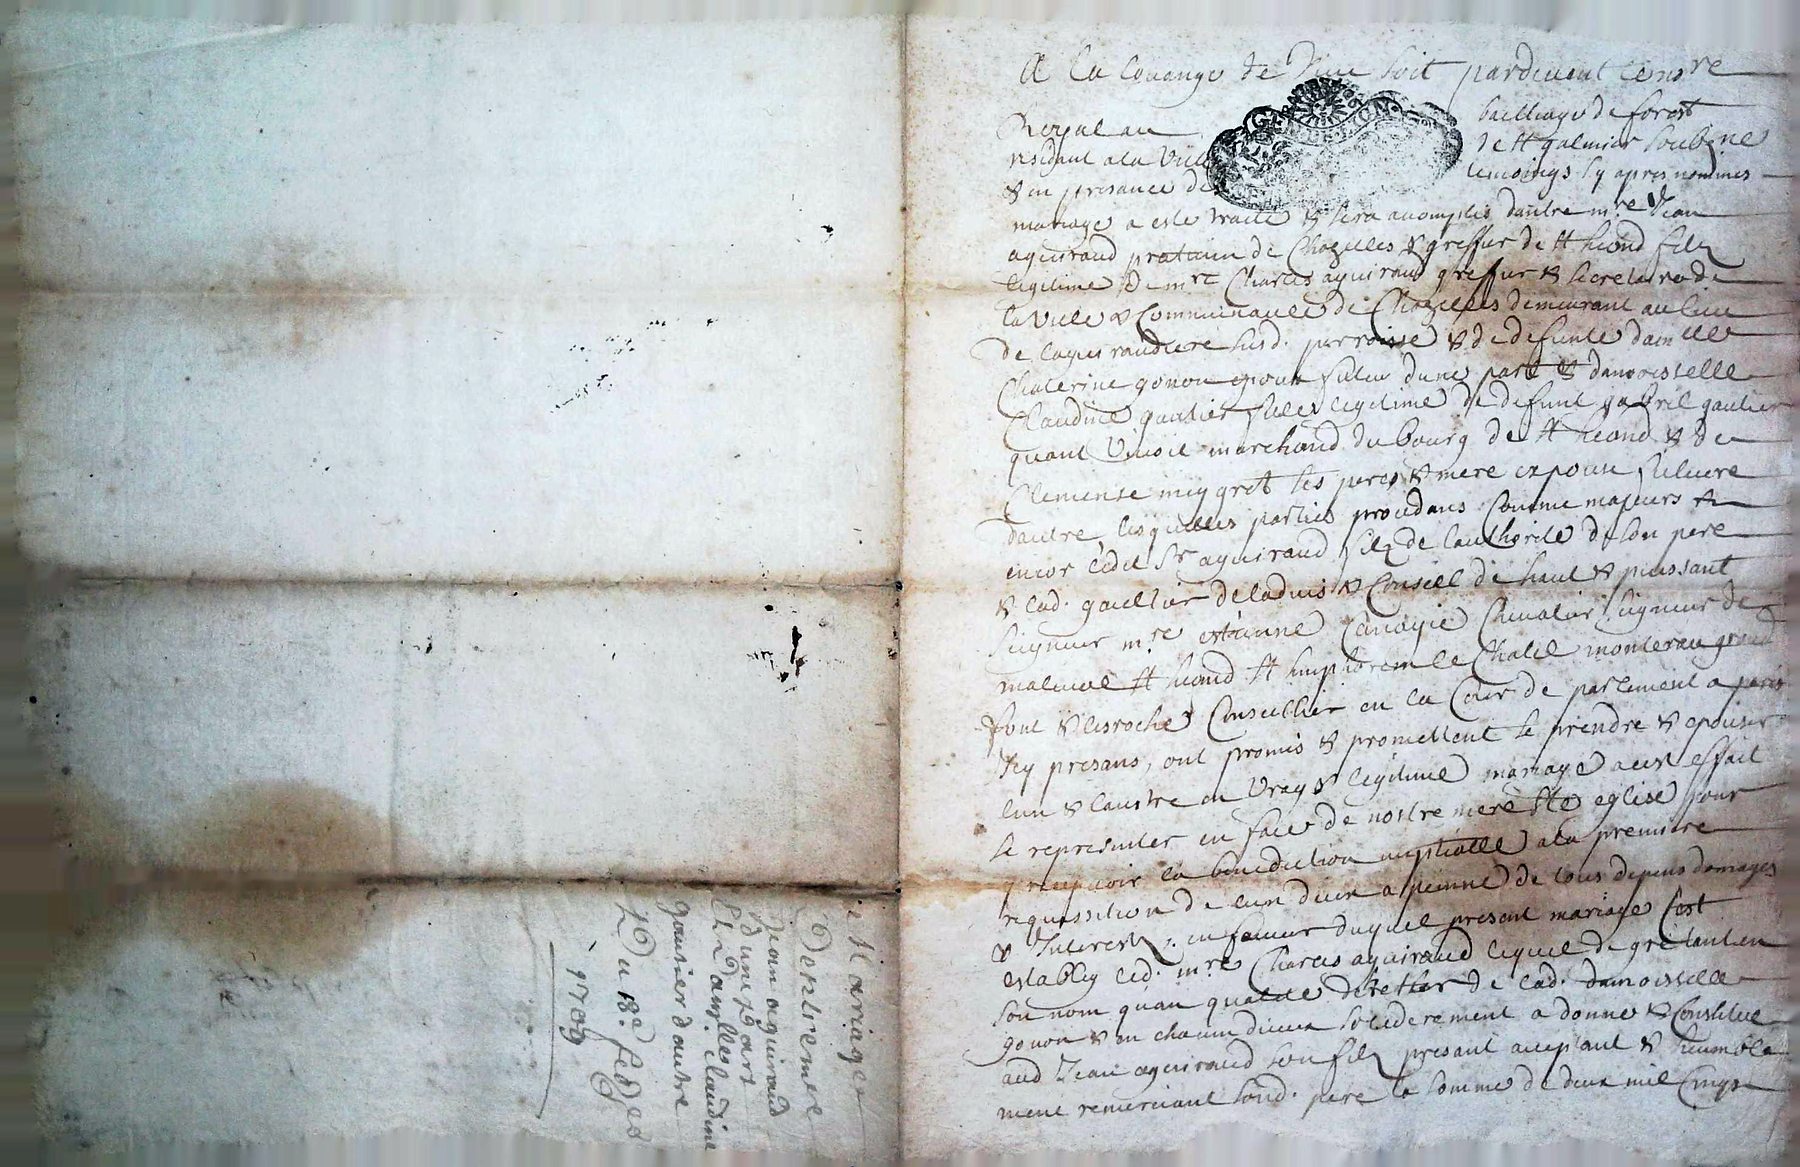 A la louange de Dieu soit pardevant le no.re
Royal au bailliage de forest
residant a la ville de St galmier soubsne
& en presance des temoings sy apres nommes
mariage a este traité & sera acomplis dantre m.re Jean
aguiraud praticien de Chazelles & greffier de St heand filz
legitime de m.re Charles aguiraud greffier & secretaire de
la ville & Communauté de Chazelles demeurant au lieu
de laguiraudiere susd. parroisse & de defunte dam.lle
Chaterine gonon epoux futeur dune part & damoiselle
Claudine gautier fille legitime de defunt gabriel gautier
quant vivoit marchand du bourg de St heand & de
Clemense meygret ses peres & mere expouse futeure
dautre, lesquelles parties procedans comme majeurs &
encor ledit Sr aguiraud filz de lauthorité de son pere
& lad. gauttier de ladvis & Conseil de haut & puissant
Seigneur m.re estienne Chevalier Seigneur de
St heand St le Chatel montcrau grand
font & lesroche Conseillier en la Cour de parlement a paris
icy presans, ont promis & promettent se prendre & epouser
lun & laustre en vray & legitime mariage a cest effait
se representer en face de nostre mere Ste eglise pour
y recepvoir la benediction nuptialle a la premiere
requissition de lun deux a peinne de tous depens domages
& Interestz. en faveur duquel present mariage sest
estably led. m.re Charles aguiraud lequel de gré tant en
son nom quan qualité de de lad. damoiselle
gonon & en chacun diceux soliderement a donné & constitue
aud Jean aguiraud son filz presant aceptant & heumble
ment remerciant sond. pere la somme de deux mil cinqs
Mariage
Dentre mre
Jean aguiraud
dune part
Et Dam.lle claudine
gautier dautre
Du 18.e fed
1709